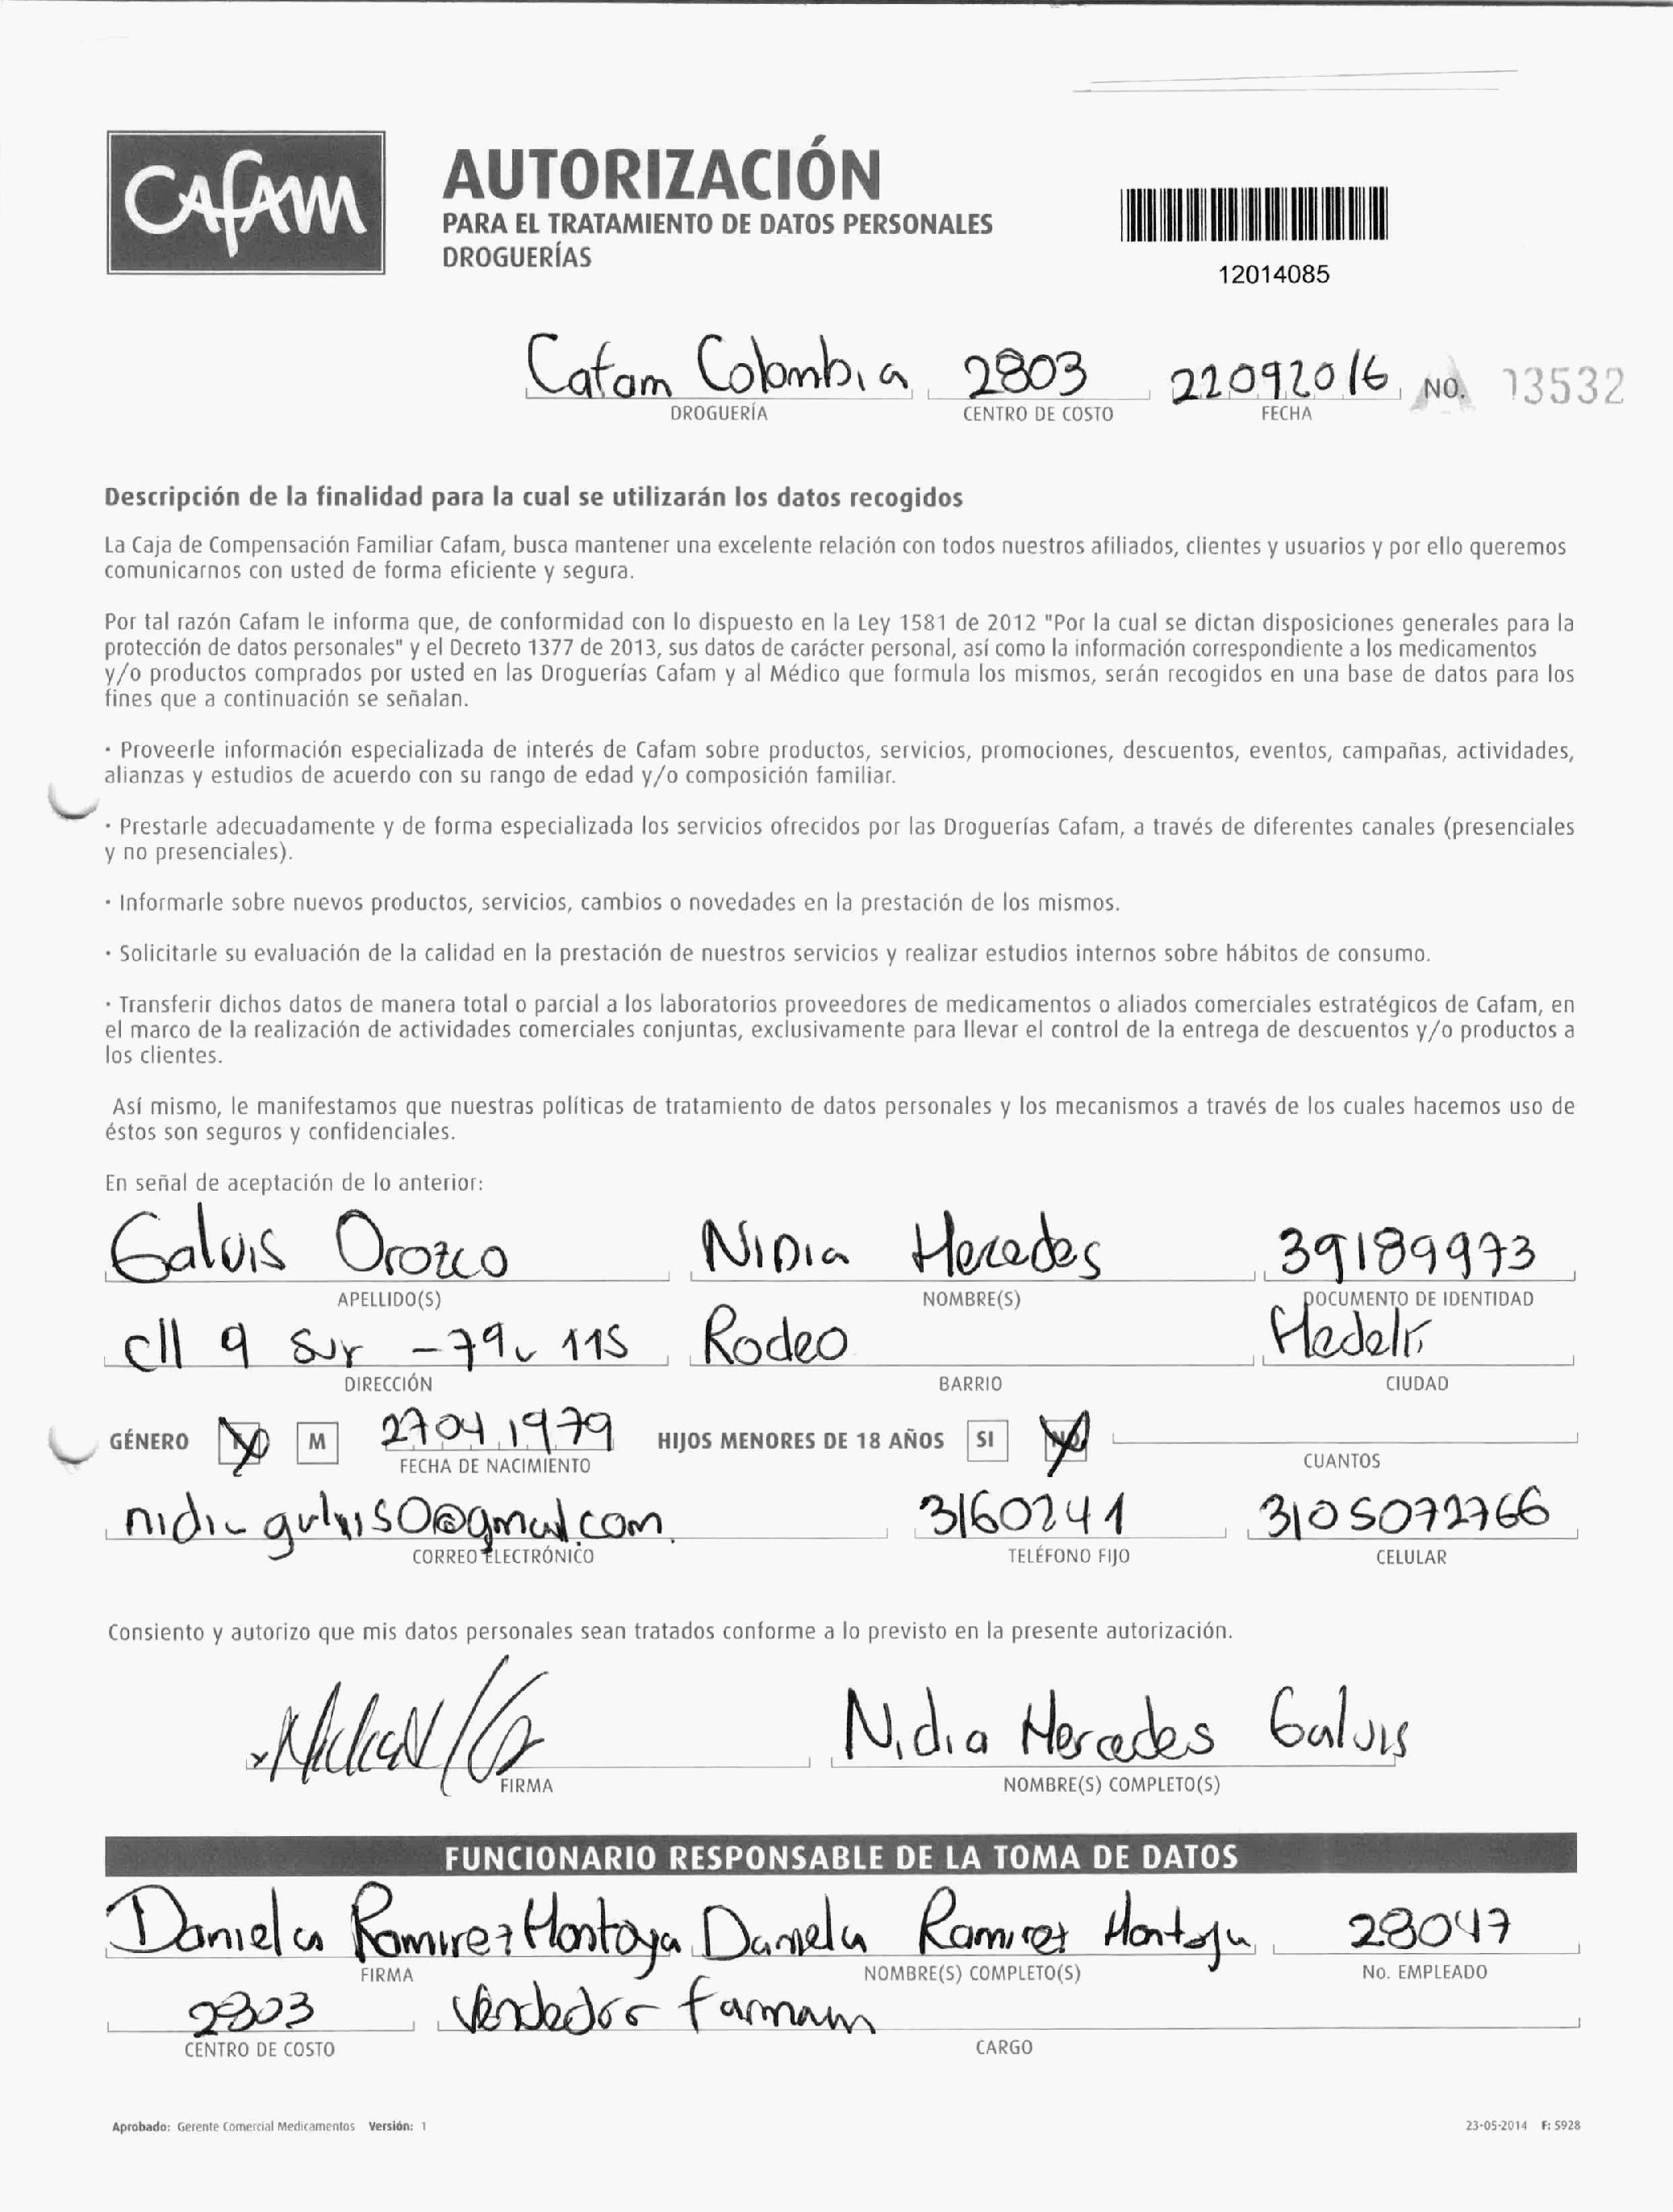 CAFAM
AUTORIZACIÓN
PARA EL TRATAMIENTO DE DATOS PERSONALES
DROGUERÍAS
12014085
Cafam Colombia 2803 22092016 NO. 13532
DROGUERÍA CENTRO DE COSTO FECHA
Descripción de la finalidad para la cual se utilizarán los datos recogidos
La Caja de Compensación Familiar Cafam, busca mantener una excelente relación con todos nuestros afiliados, clientes y usuarios y por ello queremos
comunicarnos con usted de forma eficiente y segura.
Por tal razón Cafam le informa que, de conformidad con lo dispuesto en la Ley 1581 de 2012 "Por la cual se dictan disposiciones generales para la
protección de datos personales" y el Decreto 1377 de 2013, sus datos de carácter personal, así como la información correspondiente a los medicamentos
y/o productos comprados por usted en las Droguerías Cafam y al Médico que formula los mismos, serán recogidos en una base de datos para los
fines que a continuación se señalan.
· Proveerle información especializada de interés de Cafam sobre productos, servicios, promociones, descuentos, eventos, campañas, actividades,
alianzas y estudios de acuerdo con su rango de edad y/o composición familiar.
· Prestarle adecuadamente y de forma especializada los servicios ofrecidos por las Droguerías Cafam, a través de diferentes canales (presenciales
y no presenciales).
· Informarle sobre nuevos productos, servicios, cambios o novedades en la prestación de los mismos.
· Solicitarle su evaluación de la calidad en la prestación de nuestros servicios y realizar estudios internos sobre hábitos de consumo.
· Transferir dichos datos de manera total o parcial a los laboratorios proveedores de medicamentos o aliados comerciales estratégicos de Cafam, en
el marco de la realización de actividades comerciales conjuntas, exclusivamente para llevar el control de la entrega de descuentos y/o productos a
los clientes.
Así mismo, le manifestamos que nuestras políticas de tratamiento de datos personales y los mecanismos a través de los cuales hacemos uso de
éstos son seguros y confidenciales.
En señal de aceptación de lo anterior:
Galvis Orozco Nidia Mercedes 39189973
APELLIDO(S) NOMBRE(S) DOCUMENTO DE IDENTIDAD
cll 9 sur - 79 115 Rodeo
DIRECCIÓN BARRIO CIUDAD
GÉNERO M 27041979 HIJOS MENORES DE 18 AÑOS SI NO
FECHA DE NACIMIENTO CUANTOS
3160241 3105072766
CORREO ELECTRÓNICO TELÉFONO FIJO CELULAR
Consiento y autorizo que mis datos personales sean tratados conforme a lo previsto en la presente autorización.
Nidia Mercedes Galvis
FIRMA NOMBRE(S) COMPLETO(S)
FUNCIONARIO RESPONSABLE DE LA TOMA DE DATOS
Daniela Ramirez Montoya Daniela Ramirez Montoya 28047
FIRMA NOMBRE(S) COMPLETO(S) No. EMPLEADO
2803 Vendedor farmam
CENTRO DE COSTO CARGO
Aprobado: Gerente Comercial Medicamentos Versión: 1 23-05-2014 F: 5928